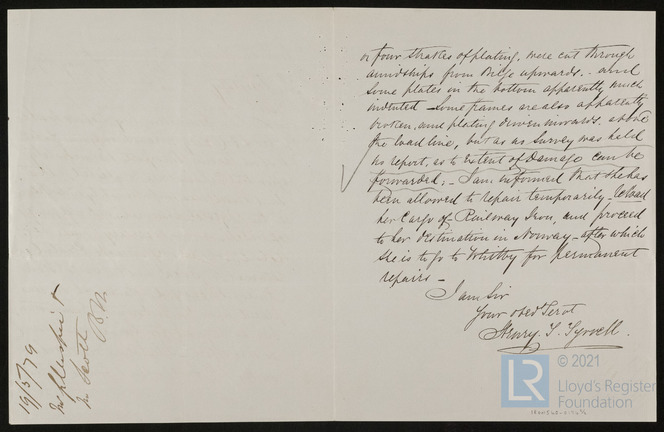 or four Strakes of plating, were cut through
amidships from Bilge upwards.. and
some plates in the bottom apparently much
indented - Some frames are also apparently
broken, and plating driven inwards, above
the load line, but as no Survey was held
no report, as to Extent of Damage can be
forwarded; - I am informed that she has
been allowed to repair temporarily - reload
her Cargo of Railway Iron, and proceed
to her destination in Norway - after which
she is to go to Whitby for permanent
repairs -
I am Sir
Your obed Servt
Henry. T. Tyrrell.
19/5/79
Mr
Mr Scott
© 2021
LR
Lloyd's Register
Foundation